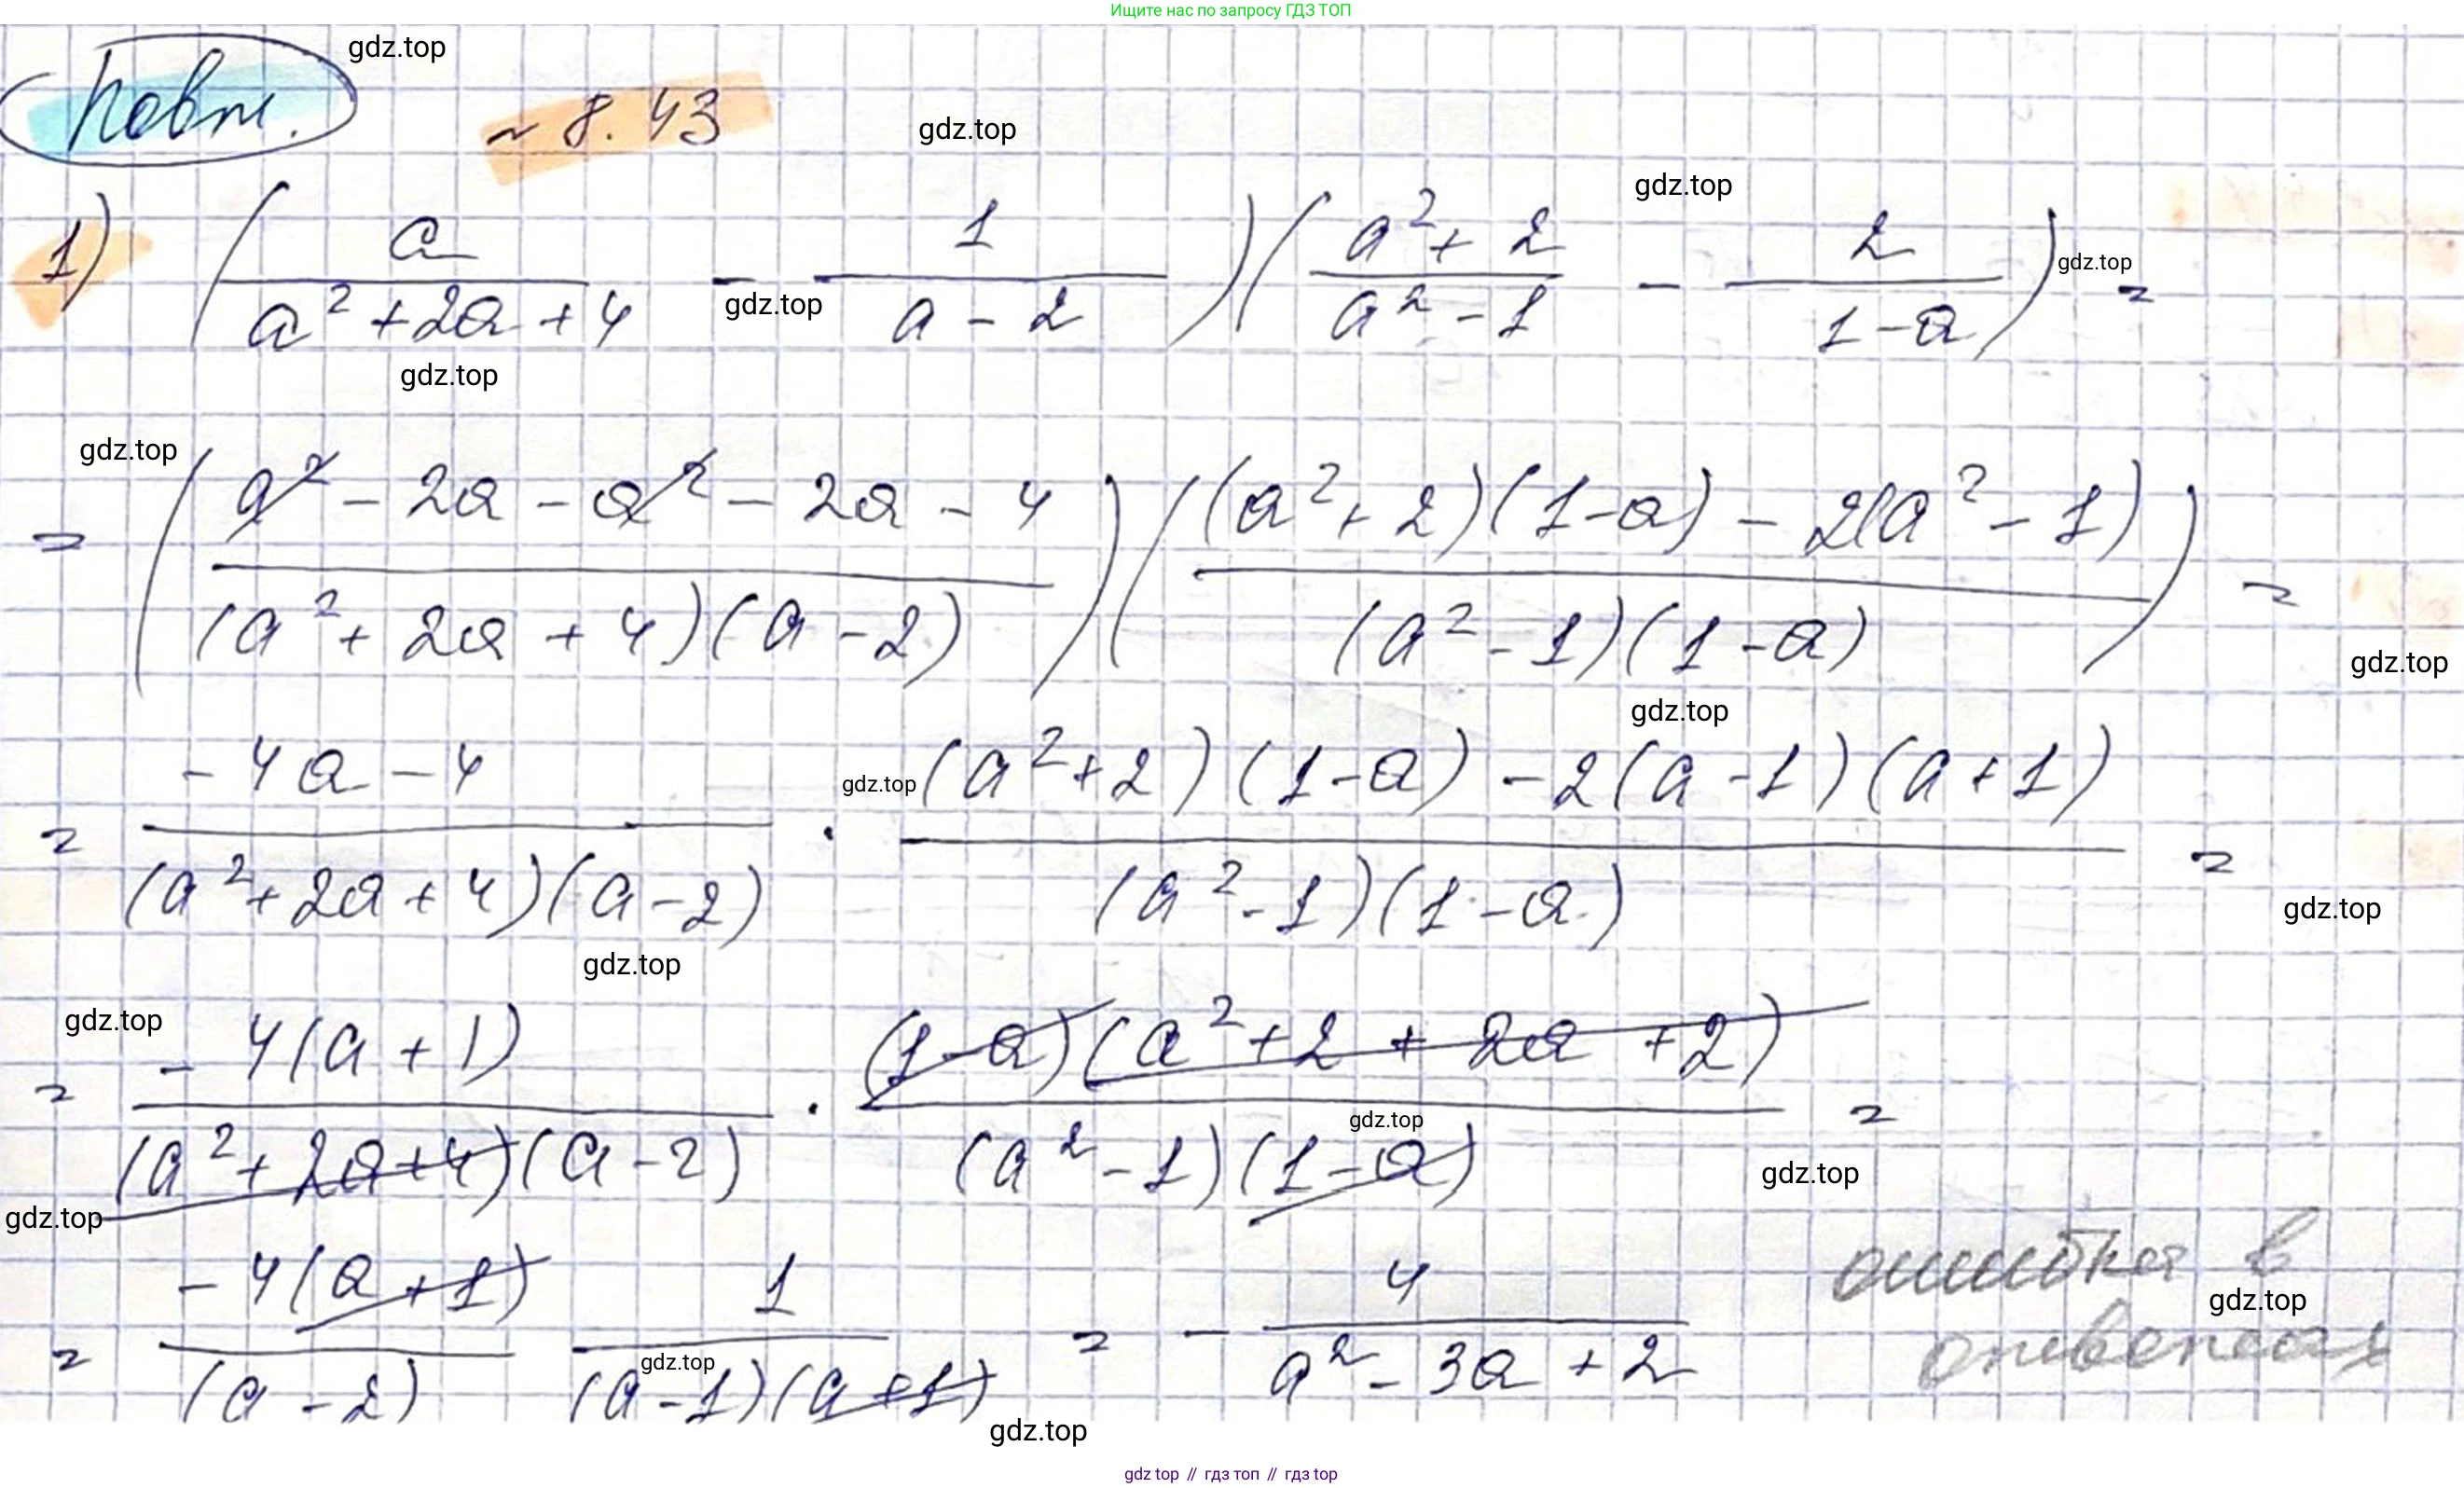 Ищите нас по запросу ГДЗ ТОП
gdz.top
Повт.
№ 8.43
gdz.top
gdz.top
1) (a/(a² + 2a + 4) - 1/(a - 2))((a² + 2)/(a² - 1) - 2/(1 - a)) =
gdz.top
gdz.top
gdz.top
gdz.top
= ((a² - 2a - a² - 2a - 4)/((a² + 2a + 4)(a - 2)))(((a² + 2)(1 - a) - 2(a² - 1))/((a² - 1)(1 - a))) =
gdz.top
gdz.top
= (-4a - 4)/((a² + 2a + 4)(a - 2)) · ((a² + 2)(1 - a) - 2(a - 1)(a + 1))/((a² - 1)(1 - a)) =
gdz.top
gdz.top
gdz.top
gdz.top
= (-4(a + 1))/((a² + 2a + 4)(a - 2)) · ((1 - a)(a² + 2 + 2a + 2))/((a² - 1)(1 - a)) =
gdz.top
gdz.top
gdz.top
= (-4(a + 1))/((a - 2)) 1/((a - 1)(a + 1)) = - 4/(a² - 3a + 2)
ошибка в
ответах
gdz.top
gdz.top
gdz.top
gdz top // гдз топ // гдз top